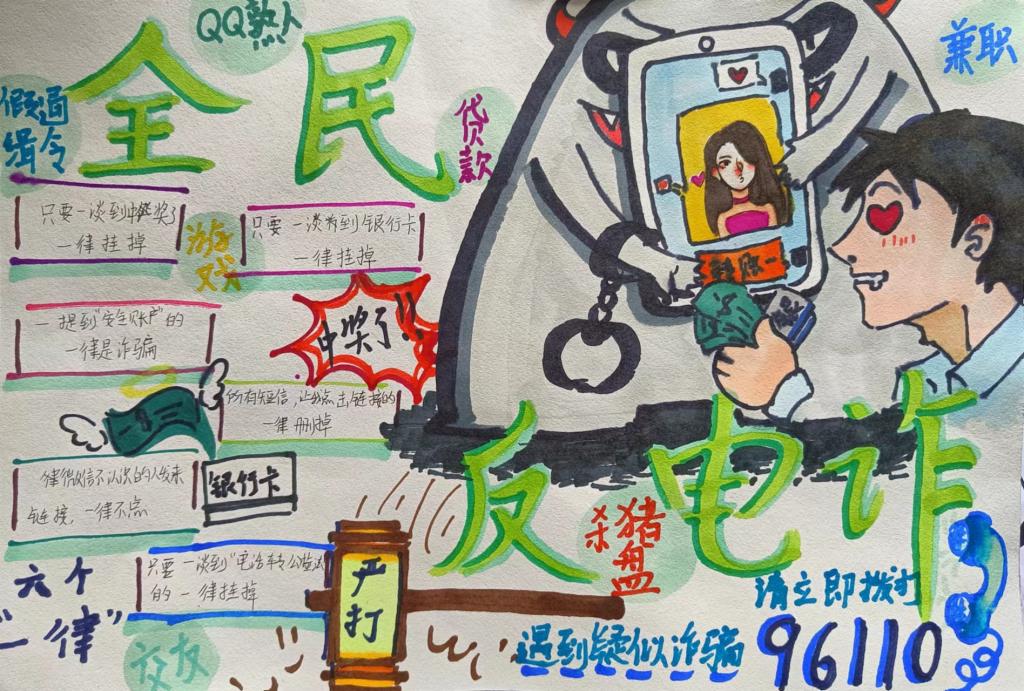 QQ熟人
全民
兼职
假冒
指令
贷款
只要一谈到中奖了
一律挂掉
游戏
只要一谈到银行卡
一律挂掉
中奖了!!
一提到"安全账户"的
一律是诈骗
所有短信,让我点击链接的
一律删掉
转账
反电诈
微信不认识的人发来
链接,一律不点
银行卡
杀猪盘
六个
"一律"
只要一谈到"电话转公检法"
的一律挂掉
严打
交友
请立即拨打
遇到疑似诈骗
96110